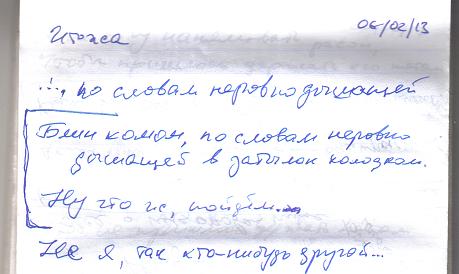 06/02/13
..., по словам неровно дышащей
комом, по словам неровно
дышащей в затылок колодком.
Ну что ж, пойдём...
Не я, так кто-нибудь другой...